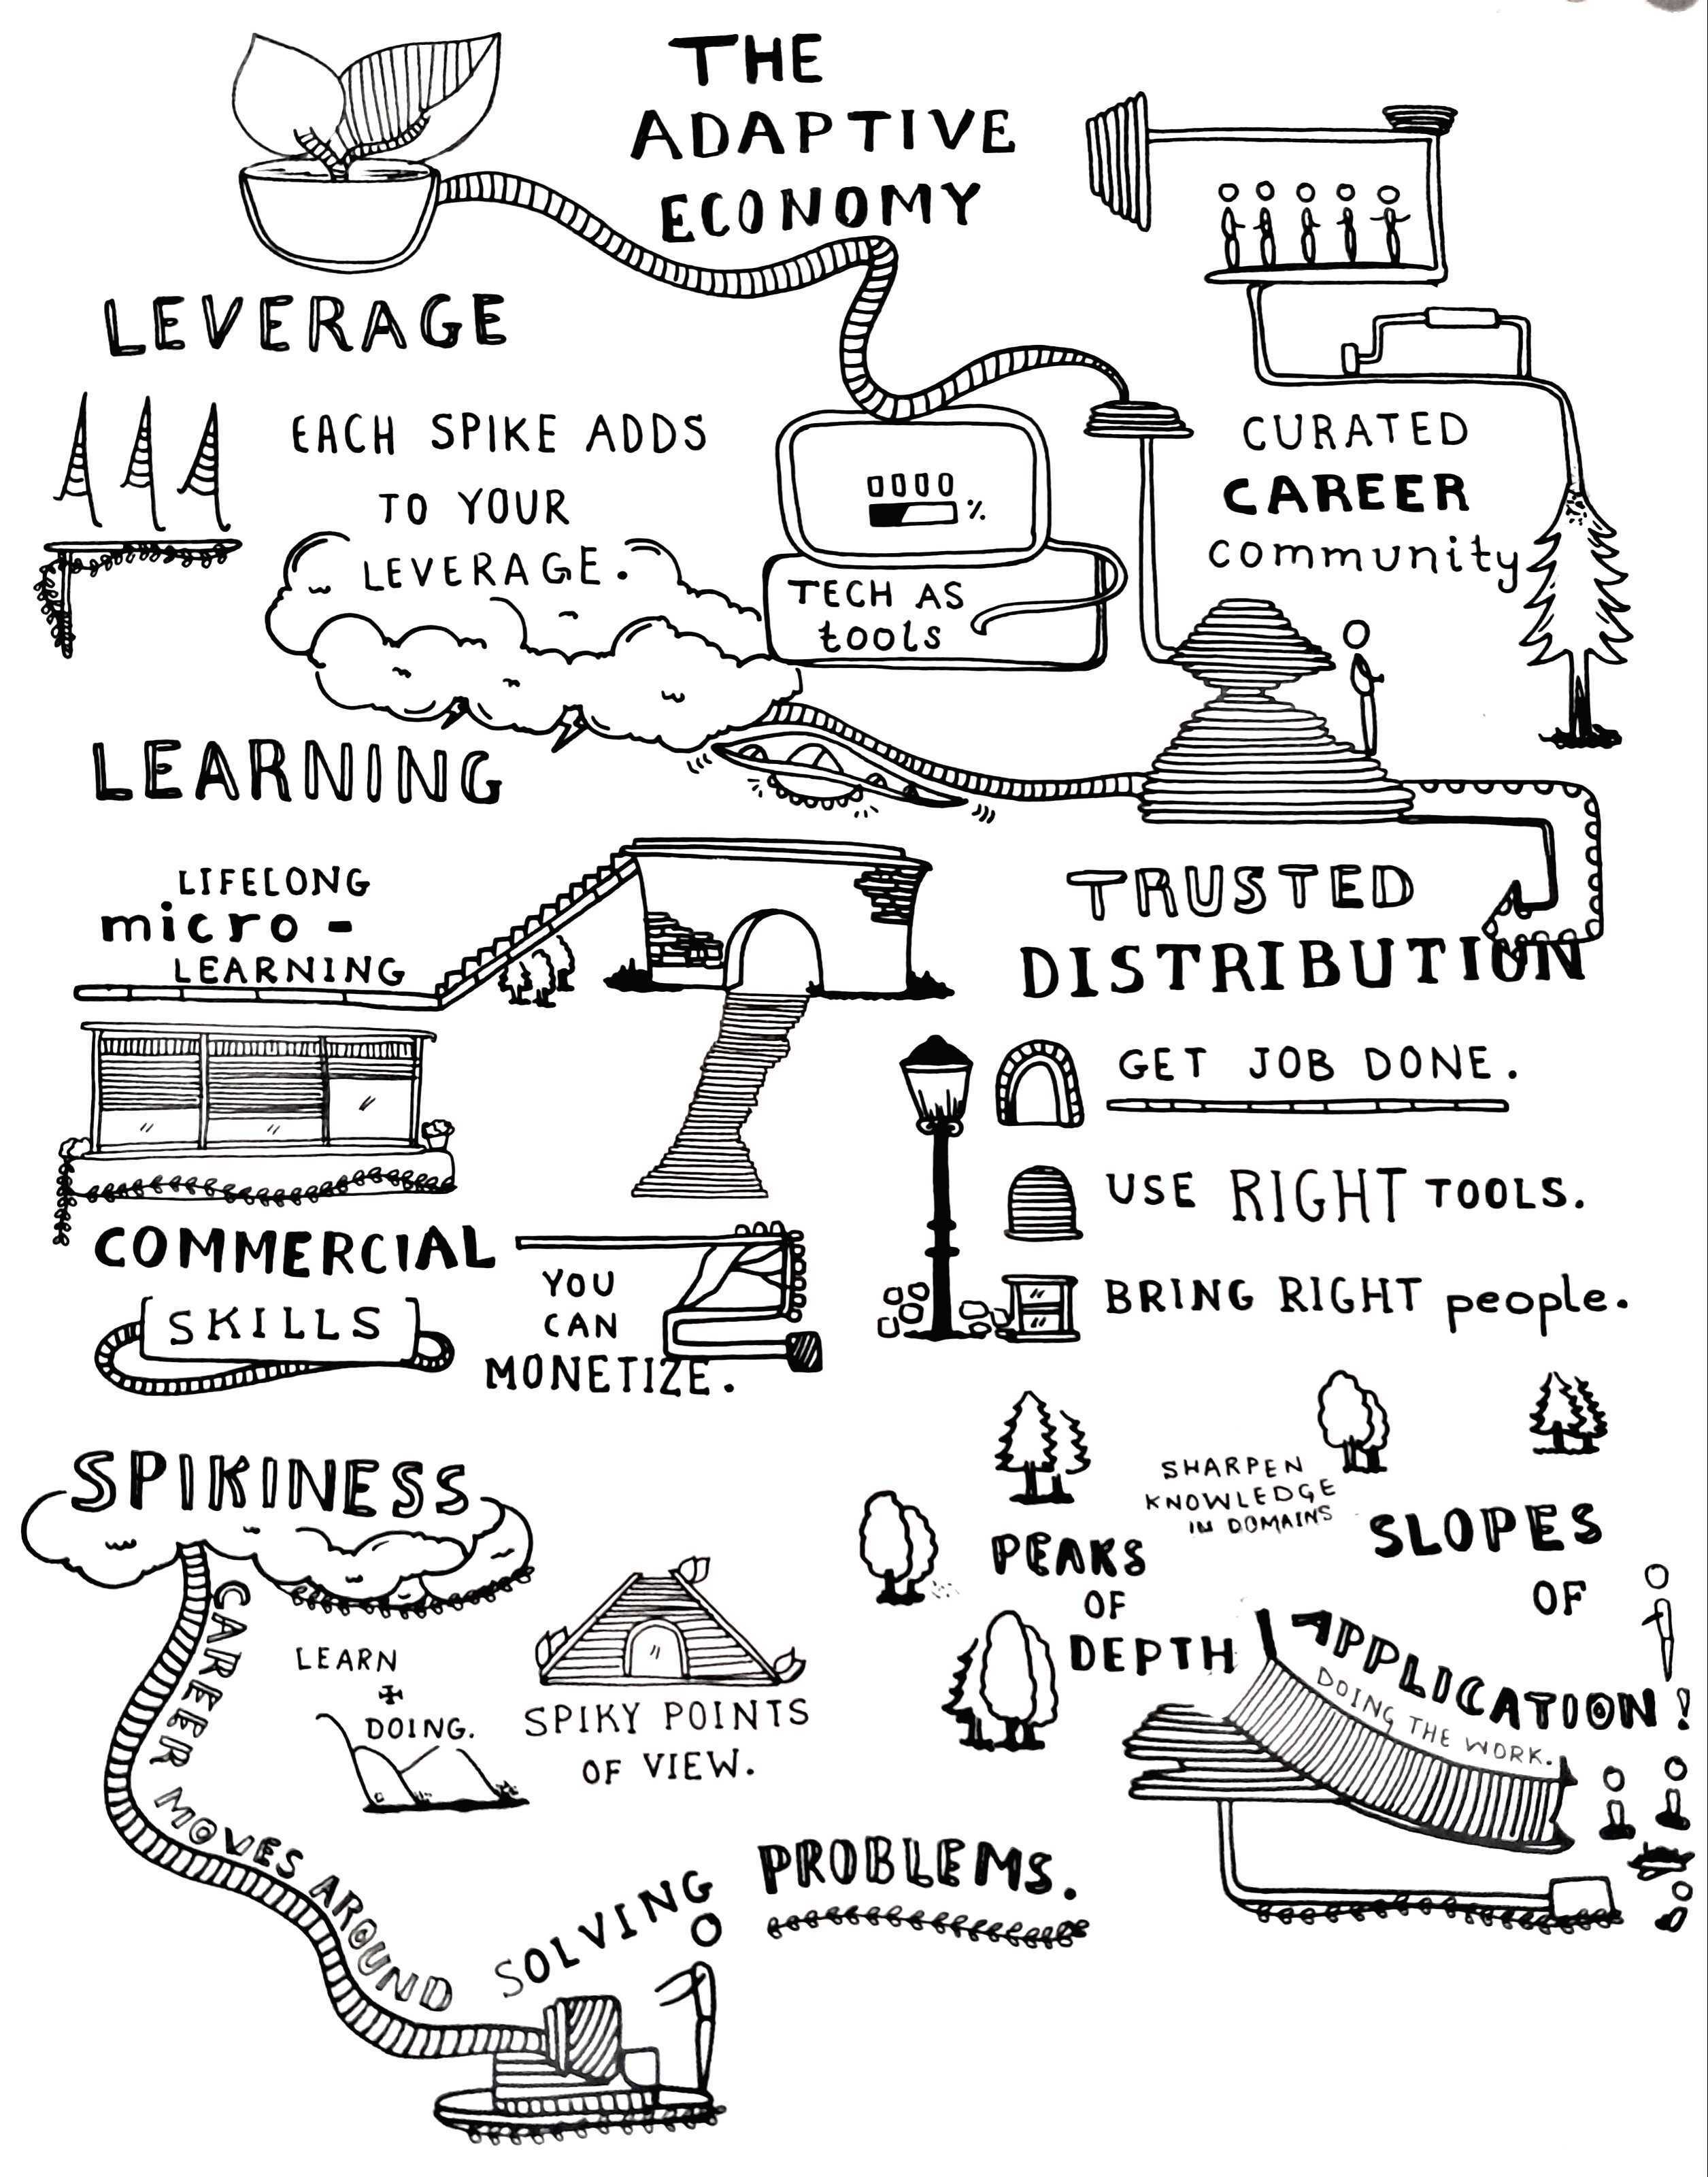 THE
ADAPTIVE
ECONOMY
LEVERAGE
EACH SPIKE ADDS
TO YOUR
LEVERAGE.
%
TECH AS
tools
CURATED
CAREER
community
LEARNING
LIFELONG
micro-
LEARNING
TRUSTED
DISTRIBUTION
GET JOB DONE.
USE RIGHT TOOLS.
BRING RIGHT people.
COMMERCIAL
SKILLS
YOU
CAN
MONETIZE.
SPIKINESS
LEARN
+
DOING.
SPIKY POINTS
OF VIEW.
SHARPEN
KNOWLEDGE
IN DOMAINS
PEAKS
OF
DEPTH
SLOPES
OF
APPLICATION!
DOING THE WORK.
CAREER MOVES AROUND
SOLVING
PROBLEMS.